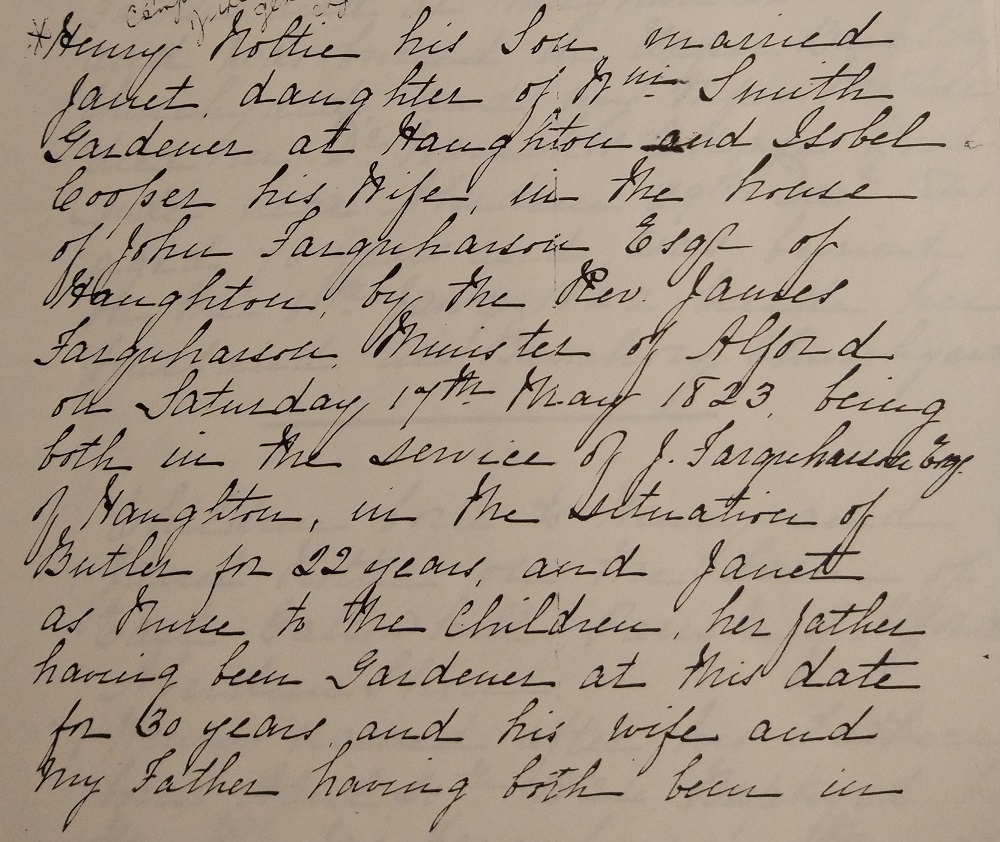 *Henry Nottie his Son, married
Janet, daughter of Wm Smith
Gardener at Haughton and Isobel
Cooper his Wife, in the house
of John Farquharson Esqr of
Haughton, by the Rev. James
Farquharson, Minister of Alford
on Saturday 17th May 1823, being
both in the service of J. Farquharson Esq.
of Haughton, in the situation of
Butler for 22 years, and Janet
as Nurse to the Children, her father
having been Gardener at this date
for 30 years, and his wife and
my Father having both been in